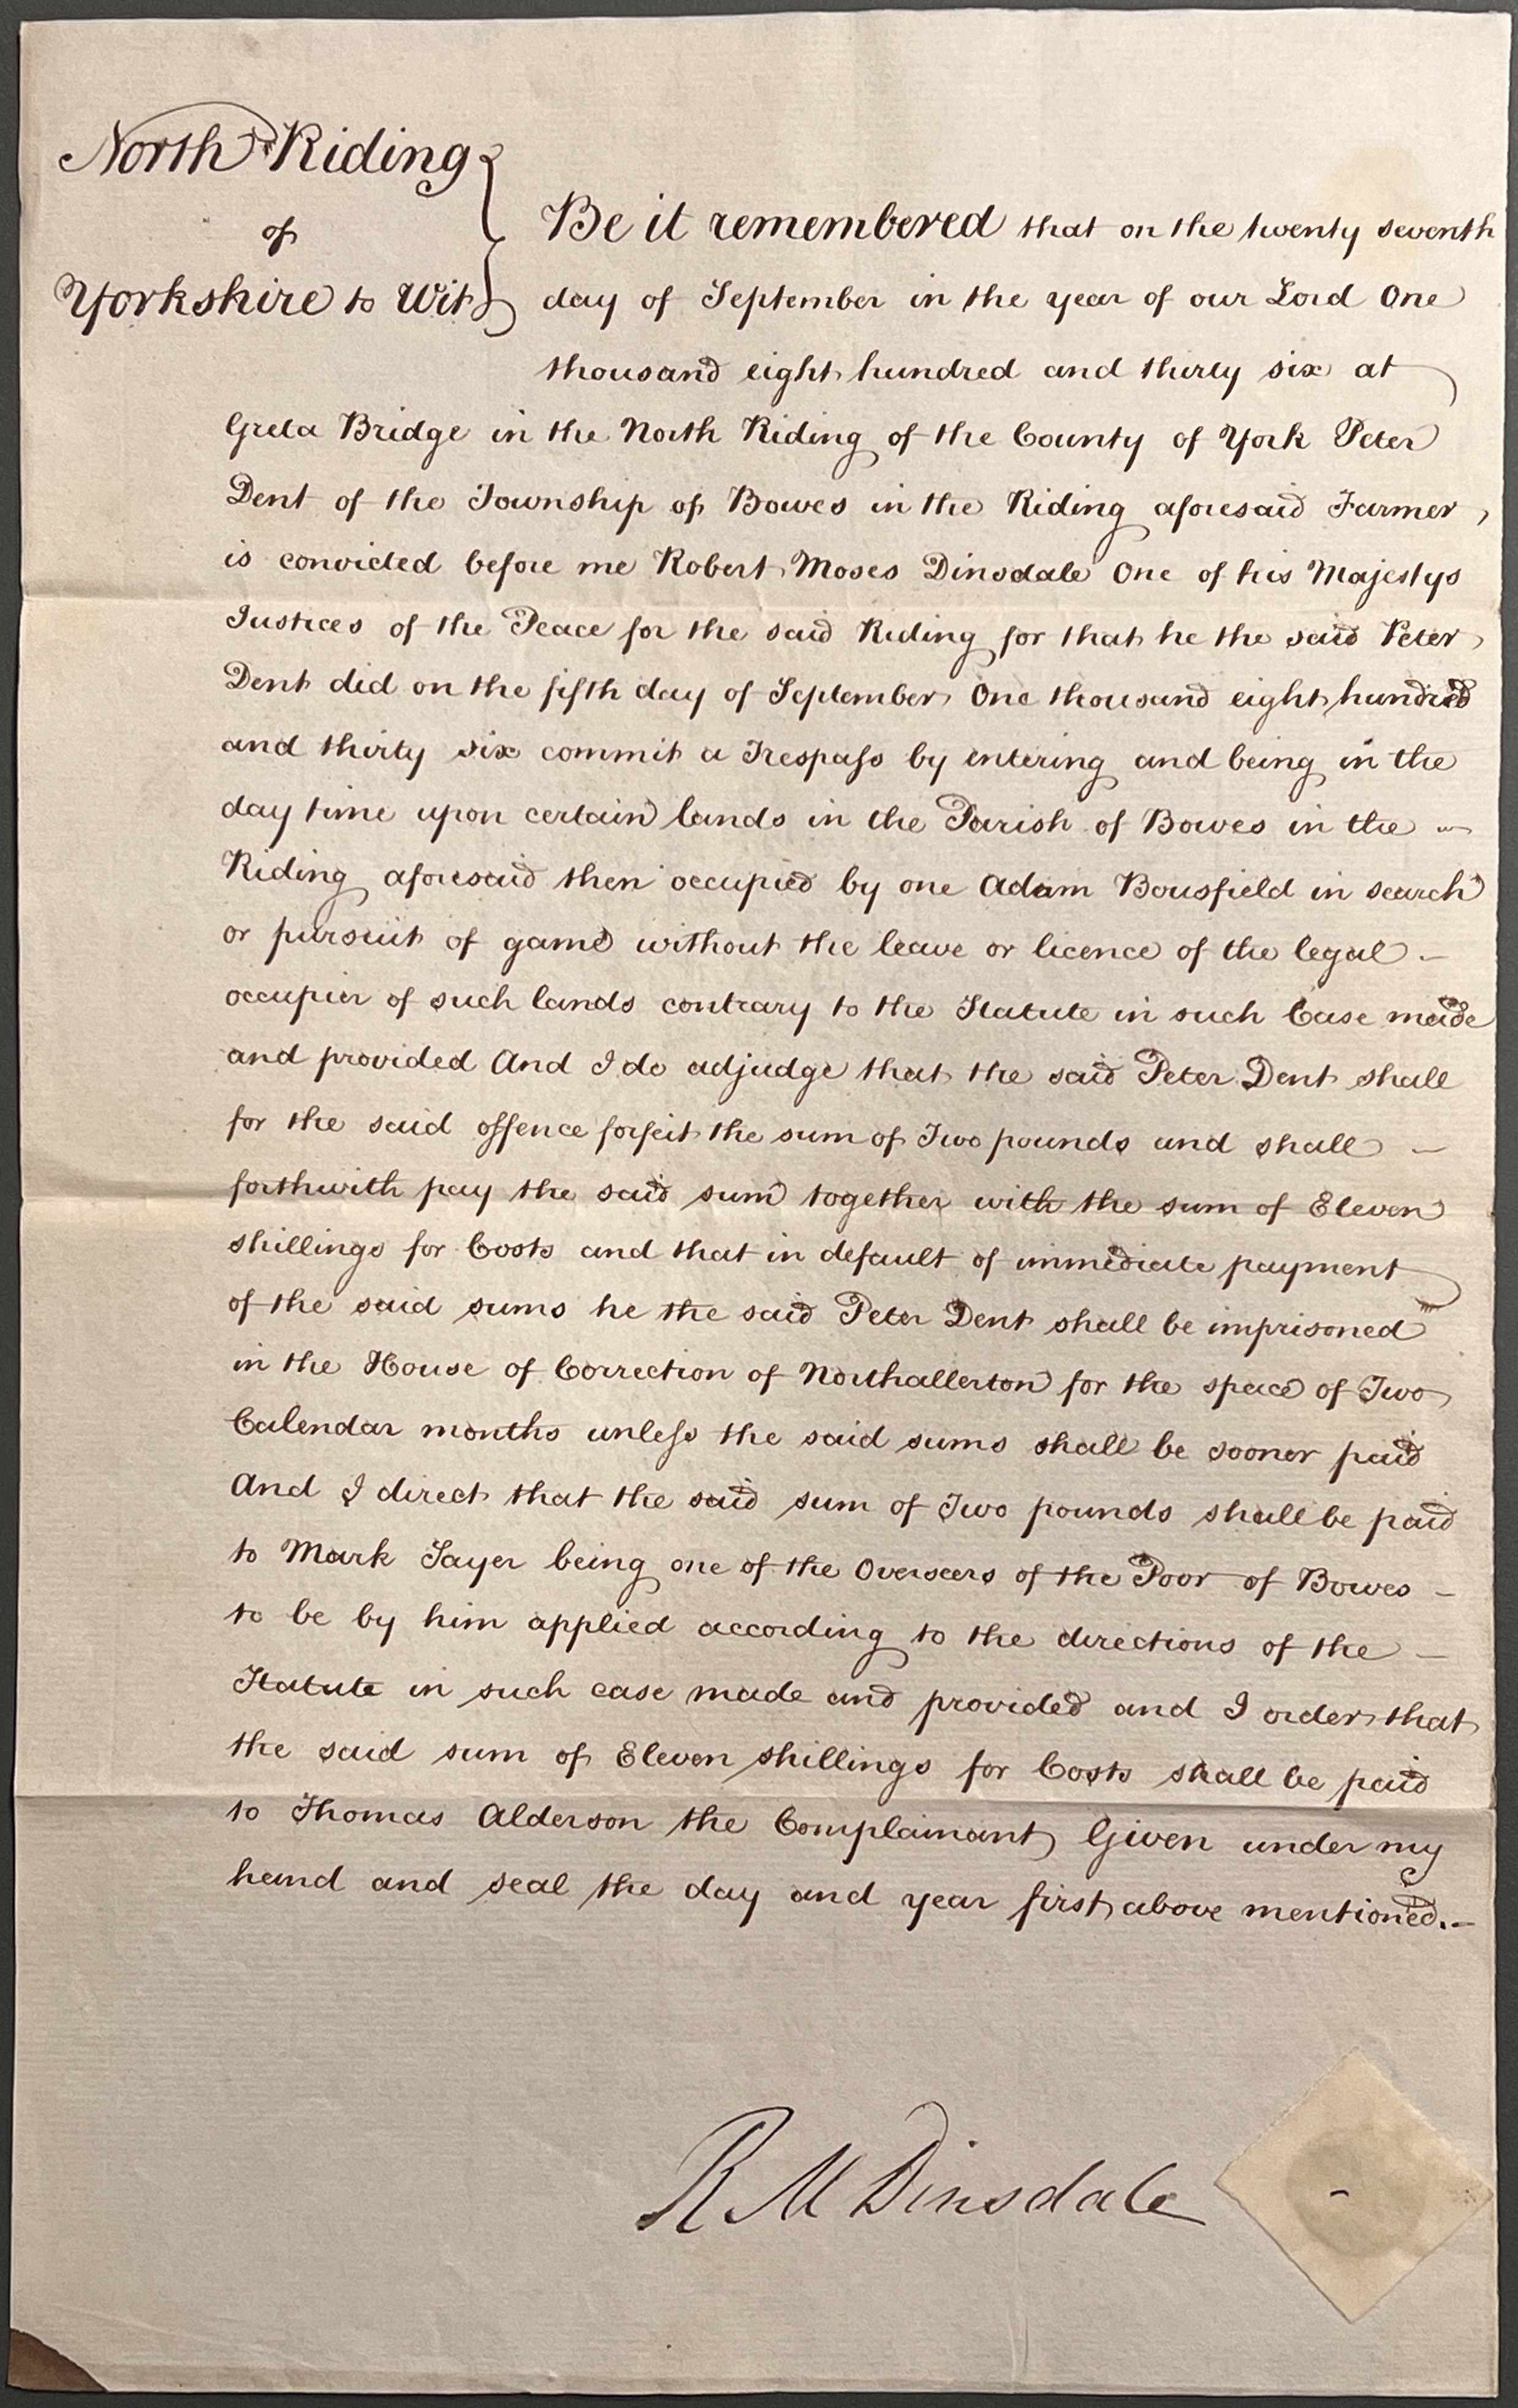 North Riding
of
Yorkshire to Wit
Be it remembered that on the twenty seventh
day of September in the year of our Lord One
thousand eight hundred and thirty six at
Greta Bridge in the North Riding of the County of York Peter
Dent of the Township of Bowes in the Riding aforesaid Farmer
is convicted before me Robert Moses Dinsdale One of his Majestys
Justices of the Peace for the said Riding for that he the said Peter
Dent did on the fifth day of September One thousand eight hundred
and thirty six commit a Trespass by entering and being in the
day time upon certain lands in the Parish of Bowes in the
Riding aforesaid then occupied by one Adam Bousfield in search
or pursuit of game without the leave or licence of the legal
occupier of such lands contrary to the Statute in such Case made
and provided And I do adjudge that the said Peter Dent shall
for the said offence forfeit the sum of Two pounds and shall
forthwith pay the said sum together with the sum of Eleven
shillings for Costs and that in default of immediate payment
of the said sums he the said Peter Dent shall be imprisoned
in the House of Correction of Northallerton for the space of Two
Calendar months unless the said sums shall be sooner paid
And I direct that the said sum of Two pounds shall be paid
to Mark Sayer being one of the Overseers of the Poor of Bowes
to be by him applied according to the directions of the
Statute in such case made and provided and I order that
the said sum of Eleven shillings for Costs shall be paid
to Thomas Alderson the Complainant Given under my
hand and seal the day and year first above mentioned.
R M Dinsdale